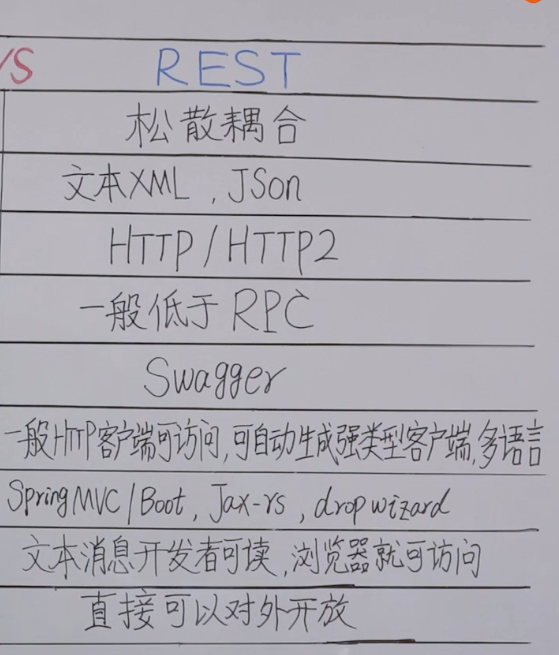 VS REST
松散耦合
文本XML，JSon
HTTP/HTTP2
一般低于RPC
Swagger
一般HTTP客户端可访问，可自动生成强类型客户端，多语言
Spring MVC/Boot，Jax-rs，drop wizard
文本消息开发者可读，浏览器就可访问
直接可以对外开放